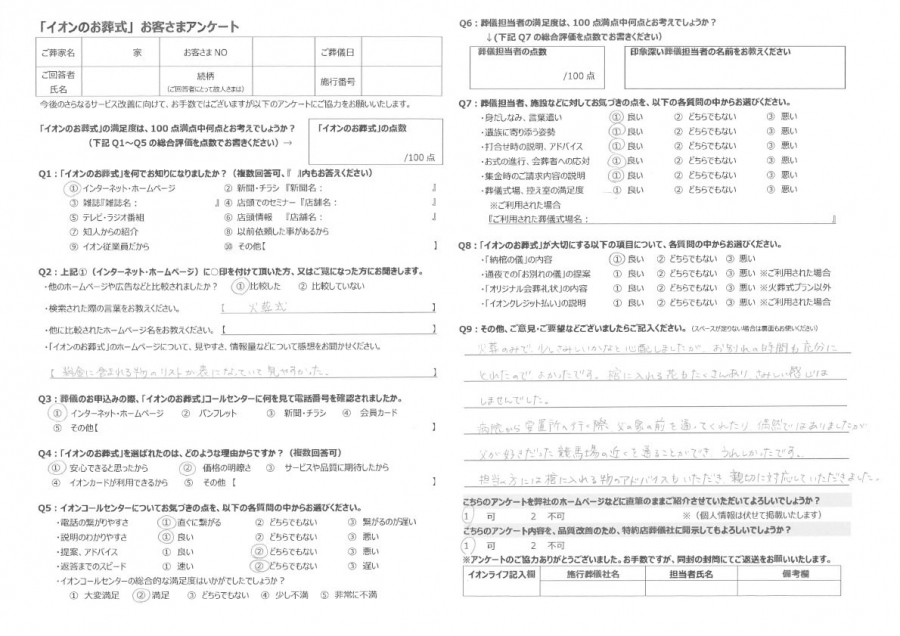 「イオンのお葬式」お客さまアンケート
ご葬家名 家 お客さまNO ご葬儀日
ご回答者氏名 続柄(ご回答者にとって故人さまは) 施行番号
今後のさらなるサービス改善に向けて、お手数ではございますが以下のアンケートにご協力をお願いいたします。
「イオンのお葬式」の満足度は、100点満点中何点とお考えでしょうか？
(下記Q1～Q5の総合評価を点数でお書きください)→
「イオンのお葬式」の点数
/100点
Q1：「イオンのお葬式」を何でお知りになりましたか？（複数回答可、『 』内もお答えください）
① インターネット・ホームページ ② 新聞・チラシ『新聞名： 』
③ 雑誌『雑誌名： 』 ④ 店頭でのセミナー『店舗名： 』
⑤ テレビ・ラジオ番組 ⑥ 店頭情報 『店舗名： 』
⑦ 知人からの紹介 ⑧ 以前依頼した事があるから
⑨ イオン従業員だから ⑩ その他【 】
Q2：上記①（インターネット・ホームページ）に○印を付けて頂いた方、又はご覧になった方にお聞きします。
・他のホームページや広告などと比較されましたか？ ① 比較した ② 比較していない
・検索された際の言葉をお教えください。 【 火葬式 】
・他に比較されたホームページ名をお教えください。【 】
・「イオンのお葬式」のホームページについて、見やすさ、情報量などについて感想をお聞かせください。
【 料金に含まれる物のリストが表になっていて見やすかった。 】
Q3：葬儀のお申込みの際、「イオンのお葬式」コールセンターに何を見て電話番号を確認されましたか。
① インターネット・ホームページ ② パンフレット ③ 新聞・チラシ ④ 会員カード
⑤ その他【 】
Q4：「イオンのお葬式」を選ばれたのは、どのような理由からですか？（複数回答可）
① 安心できると思ったから ② 価格の明瞭さ ③ サービスや品質に期待したから
④ イオンカードが利用できるから ⑤ その他 【 】
Q5：イオンコールセンターについてお気づきの点を、以下の各質問の中からお選びください。
・電話の繋がりやすさ ① 直ぐに繋がる ② どちらでもない ③ 繋がるのが遅い
・説明のわかりやすさ ① 良い ② どちらでもない ③ 悪い
・提案、アドバイス ① 良い ② どちらでもない ③ 悪い
・返答までのスピード ① 速い ② どちらでもない ③ 遅い
・イオンコールセンターの総合的な満足度はいかがでしたでしょうか？
① 大変満足 ② 満足 ③ どちらでもない ④ 少し不満 ⑤ 非常に不満
Q6：葬儀担当者の満足度は、100点満点中何点とお考えでしょうか？
↓(下記Q7の総合評価を点数でお書きください)
葬儀担当者の点数
/100点
印象深い葬儀担当者の名前をお教えください
Q7：葬儀担当者、施設などに対してお気づきの点を、以下の各質問の中からお選びください。
・身だしなみ、言葉遣い ① 良い ② どちらでもない ③ 悪い
・遺族に寄り添う姿勢 ① 良い ② どちらでもない ③ 悪い
・打合せ時の説明、アドバイス ① 良い ② どちらでもない ③ 悪い
・お式の進行、会葬者への応対 ① 良い ② どちらでもない ③ 悪い
・集金時のご請求内容の説明 ① 良い ② どちらでもない ③ 悪い
・葬儀式場、控え室の満足度 ① 良い ② どちらでもない ③ 悪い
※ご利用された場合
『ご利用された葬儀式場名： 』
Q8：「イオンのお葬式」が大切にする以下の項目について、各質問の中からお選びください。
・「納棺の儀」の内容 ① 良い ② どちらでもない ③ 悪い
・通夜での「お別れの儀」の提案 ① 良い ② どちらでもない ③ 悪い ※ご利用された場合
・「オリジナル会葬礼状」の内容 ① 良い ② どちらでもない ③ 悪い ※火葬式プラン以外
・「イオンクレジット払い」の説明 ① 良い ② どちらでもない ③ 悪い ※ご利用された場合
Q9：その他、ご意見・ご要望などございましたらご記入ください。(スペースが足りない場合は裏面もお使いください)
火葬のみで、少しさみしいかなと心配しましたが、お別れの時間も充分に
とれたので よかったです。棺に入れる花もたくさんあり、さみしい感じは
しませんでした。
病院から安置所への行く際 父の家の前を通ってくれたり 偶然ではありましたが
父が好きだった競馬場の近くを通ることができ うれしかったです。
担当の方には棺に入れる物のアドバイスもいただき 親切に対応していただきました。
こちらのアンケートを弊社のホームページなどに直筆のままご紹介させていただいてよろしいでしょうか？
1 可 2 不可 ※（個人情報は伏せて掲載いたします）
こちらのアンケート内容を、品質改善のため、特約店葬儀社に開示してもよろしいでしょうか？
1 可 2 不可
※アンケートのご協力ありがとうございました。お手数ですが、同封の封筒にてご返送をお願いいたします。
イオンライフ記入欄 施行葬儀社名 担当者氏名 備考欄